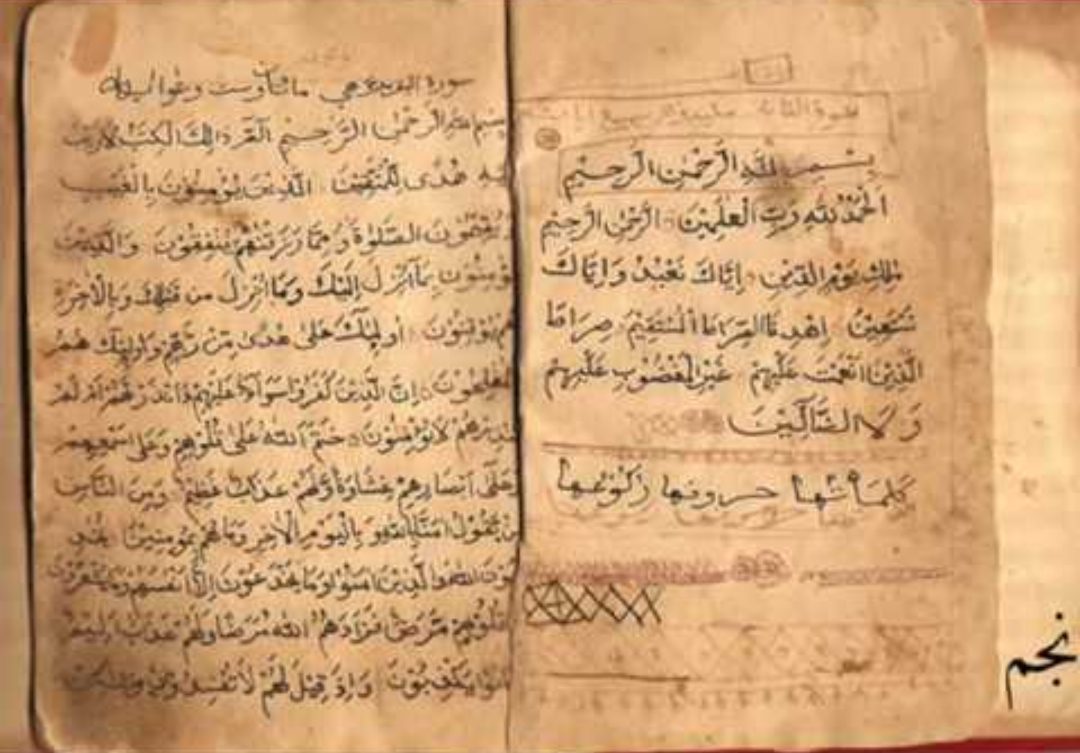 بِسْمِ اللهِ الرَّحْمٰنِ الرَّحِيْمِ
اَلْحَمْدُ لِلّٰهِ رَبِّ الْعٰلَمِيْنَ الرَّحْمٰنِ الرَّحِيْمِ
مٰلِكِ يَوْمِ الدِّيْنِ اِيَّاكَ نَعْبُدُ وَاِيَّاكَ
نَسْتَعِيْنُ اِهْدِنَا الصِّرَاطَ الْمُسْتَقِيْمَ صِرَاطَ
الَّذِيْنَ اَنْعَمْتَ عَلَيْهِمْ غَيْرِ الْمَغْضُوْبِ عَلَيْهِمْ
وَلَا الضَّآلِّيْنَ
كلماتها حروفها ركوعها
سورة وهي مائتان وست
بسم الله الرحمن الرحيم الم ذالك الكتب لاريب
فيه هدى للمتقين الذين يؤمنون بالغيب
ويقيمون الصلوة ومما رزقنهم ينفقون والذين
يؤمنون بما انزل اليك وما انزل من قبلك وبالاخرة
هم يوقنون اولئك على هدى من ربهم واولئك هم
المفلحون ان الذين كفروا سواء عليهم ءانذرتهم ام لم
تنذرهم لا يؤمنون ختم الله على قلوبهم وعلى سمعهم
وعلى ابصارهم غشاوة ولهم عذاب عظيم ومن الناس
من يقول امنا بالله وباليوم الاخر وما هم بمؤمنين يخد
عون الله والذين امنوا وما يخدعون الا انفسهم وما يشعرون
قلوبهم مرض فزادهم الله مرضا ولهم عذاب اليم
كانوا يكذبون واذ قيل لهم لا تفسدوا
نجم